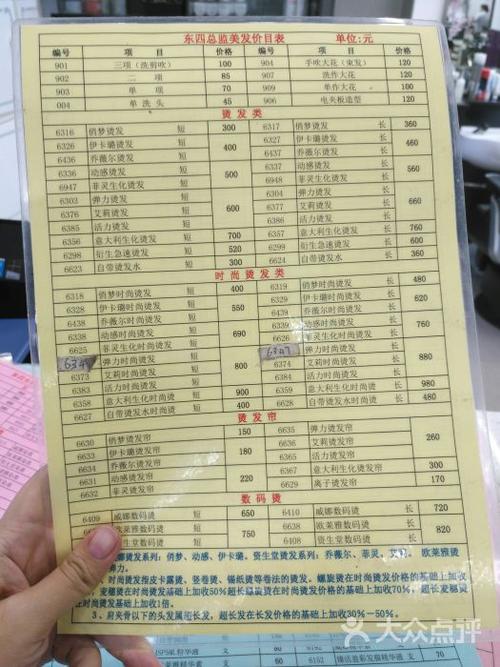 东四总监美发价目表 单位:元
编号 项目 价格 编号 项目 价格
901 三项(洗剪吹) 100 904 手吹大花(束发) 120
902 二项 85 907 洗作大花 120
903 单项 70 909 单作大花 100
004 单洗头 45 906 电夹板造型 120
烫发类
6316 俏梦烫发 短 300 6317 俏梦烫发 长 360
6326 伊卡璐烫发 短 400 6327 伊卡璐烫发 长 460
6436 乔薇尔烫发 短 6437 乔薇尔烫发 长
6336 动感烫发 短 500 6337 动感烫发 长 560
6947 菲灵生化烫发 短 6948 菲灵生化烫发 长
6302 弹力烫发 短 600 6304 弹力烫发 长 660
6376 艾莉烫发 短 6377 艾莉烫发 长
6385 活力烫发 短 6386 活力烫发 长
6356 意大利生化烫发 短 700 6357 意大利生化烫发 长 760
6298 衍生急速烫发 短 520 6299 衍生急速烫发 长 600
6623 自带烫发水 短 300 6624 自带烫发水 长 360
时尚烫发类
6318 俏梦时尚烫发 短 400 6319 俏梦时尚烫发 长 480
6328 伊卡璐时尚烫发 短 550 6329 伊卡璐时尚烫发 长 620
6438 乔薇尔时尚烫发 短 乔薇尔时尚烫发 长
6338 动感时尚烫发 短 690 6339 动感时尚烫发 长 760
6625 菲灵生化时尚烫发 短 6626 菲灵生化时尚烫发 长
弹力时尚烫发 短 800 6347 弹力时尚烫发 长 880
6373 艾莉时尚烫发 短 6374 艾莉时尚烫发 长
6383 活力时尚烫发 短 6384 活力时尚烫发 长
6358 意大利生化时尚烫 短 900 6359 意大利生化时尚烫 长 980
6627 自带烫发水时尚烫 短 400 6628 自带烫发水时尚烫 长 480
烫发帘
6630 俏梦烫发帘 150 6635 弹力烫发帘 260
6633 伊卡璐烫发帘 180 6636 艾莉烫发帘
6634 乔薇尔烫发帘 6365 活力烫发帘
6631 动感烫发帘 220 6367 意大利烫发帘 300
6632 菲灵烫发帘 6629 离子烫发帘 170
数码烫
6409 威娜数码烫 短 650 6410 威娜数码烫 长 720
欧莱雅数码烫 短 750 6638 欧莱雅数码烫 长 820
资生堂数码烫 短 6408 资生堂数码烫 长
烫发系列:俏梦、动感、伊卡璐、资生堂烫发系列:乔薇尔、菲灵、艾莉、 欧莱雅烫
弹力。
时尚烫发指皮卡露烫、竖卷烫、锡纸烫等卷法的烫发。螺旋烫在时尚烫发价格的基础上加收
麦穗烫在时尚烫发基础上加收50%超长螺旋烫在时尚烫发价格的基础上加收70%,超长麦穗烫
时尚烫发基础上加收1倍。
3、肩夹骨以下的头发属超长发,超长发在长发价格的基础上加收30%—50%。
大众点评